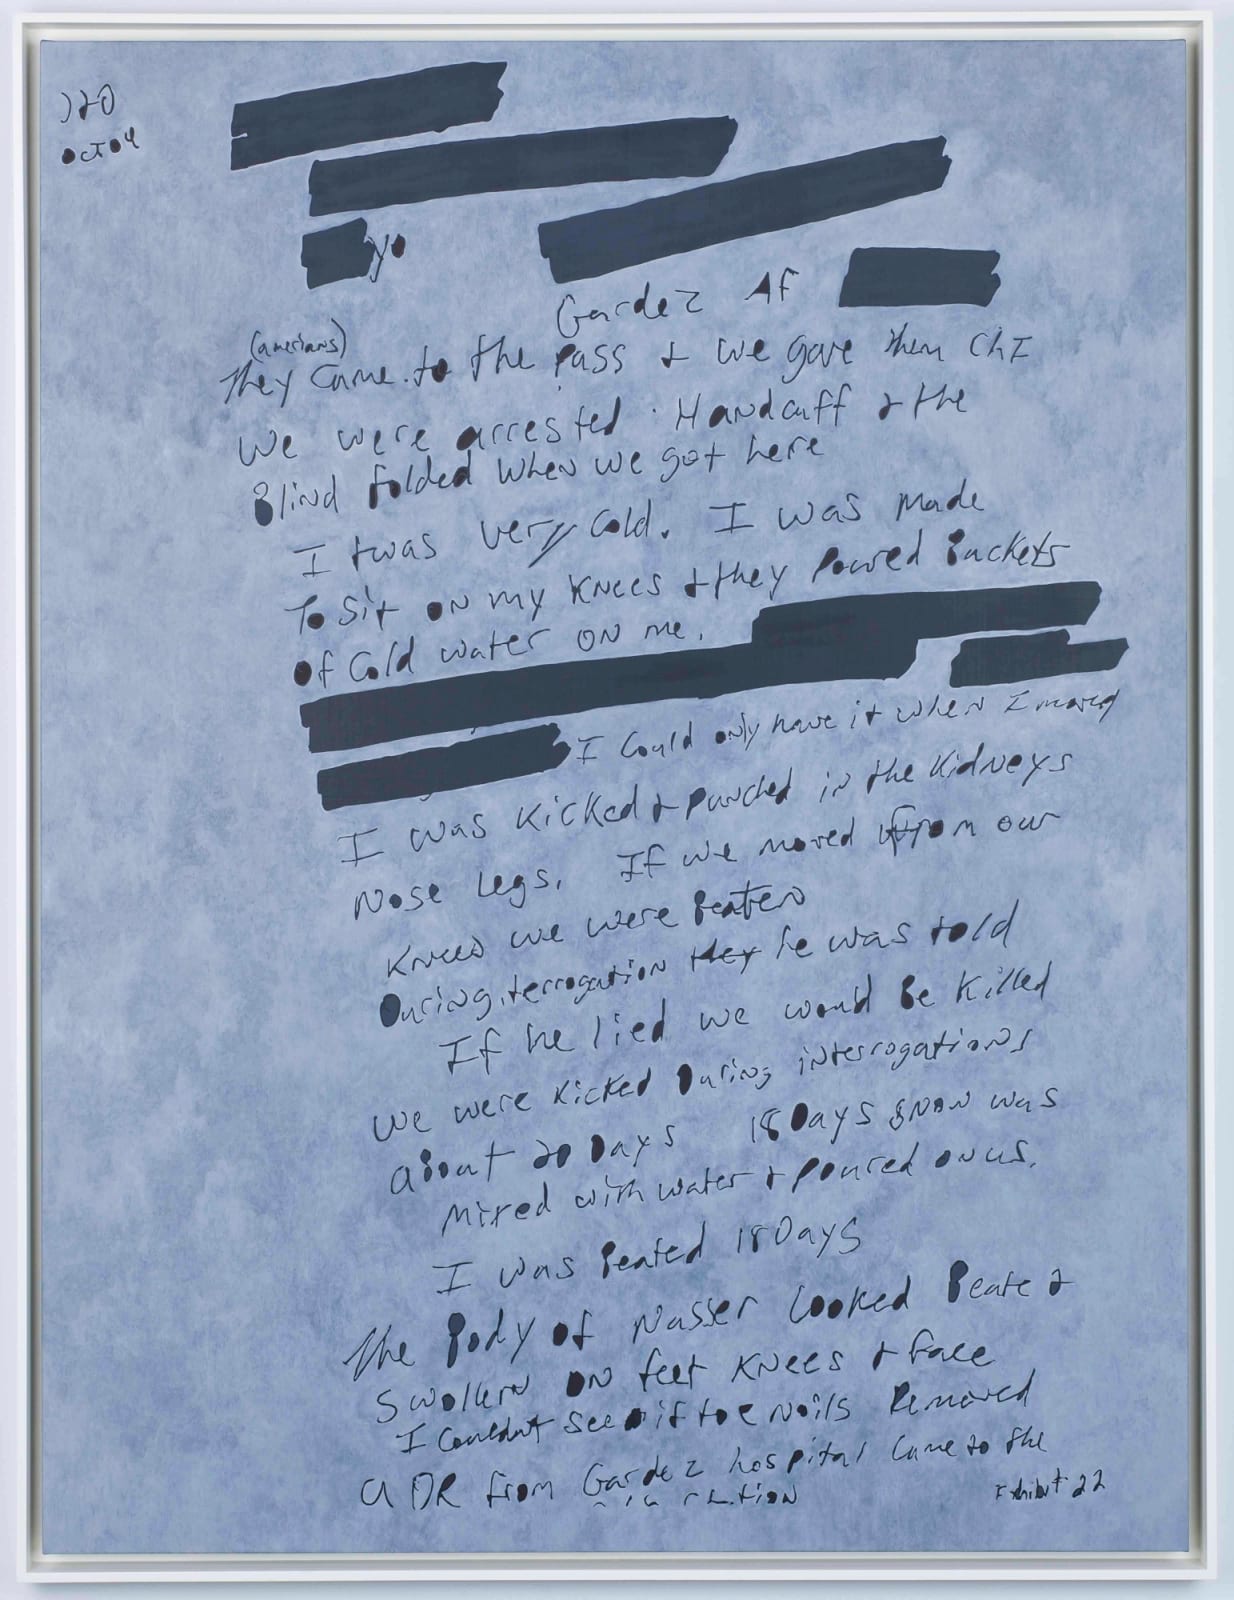 120
Oct 04
yo
Gardez Af
(amerians)
They Came. to the pass + we gave them ChI
We were arrested. Handcuff + the
Blind folded when we got here
I twas very Cold. I was made
To Sit on my Knees + they Poured Buckets
of Cold water on me.
I Could only have it when I moved
I was Kicked + punched in the Kidneys
Nose Legs. If we moved from our
Knees we were Beaten
During interrogation they he was told
If he lied we would Be Killed
We were Kicked During interrogations
About 20 Days 18 Days snow was
Mixed with water + poured on us.
I was Beated 18 Days
The Body of Nasser Looked Beate +
Swollern on feet Knees + face
I Couldnt See if toe nails Removed
a DR from Gardez hospital Came to the
Exhibit 22